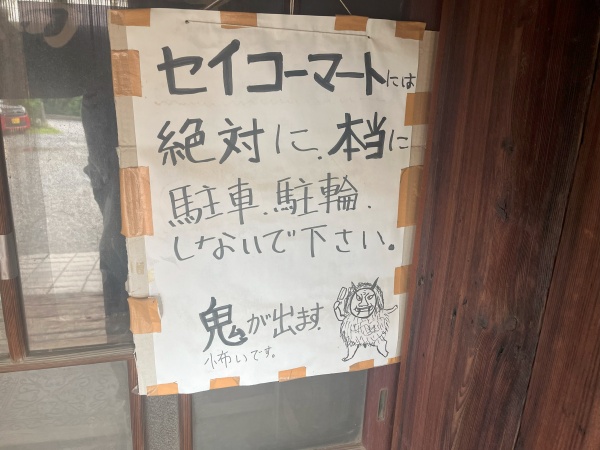 セイコーマートには
絶対に、本当に
駐車、駐輪、
しないで下さい。
鬼が出ます。
怖いです。